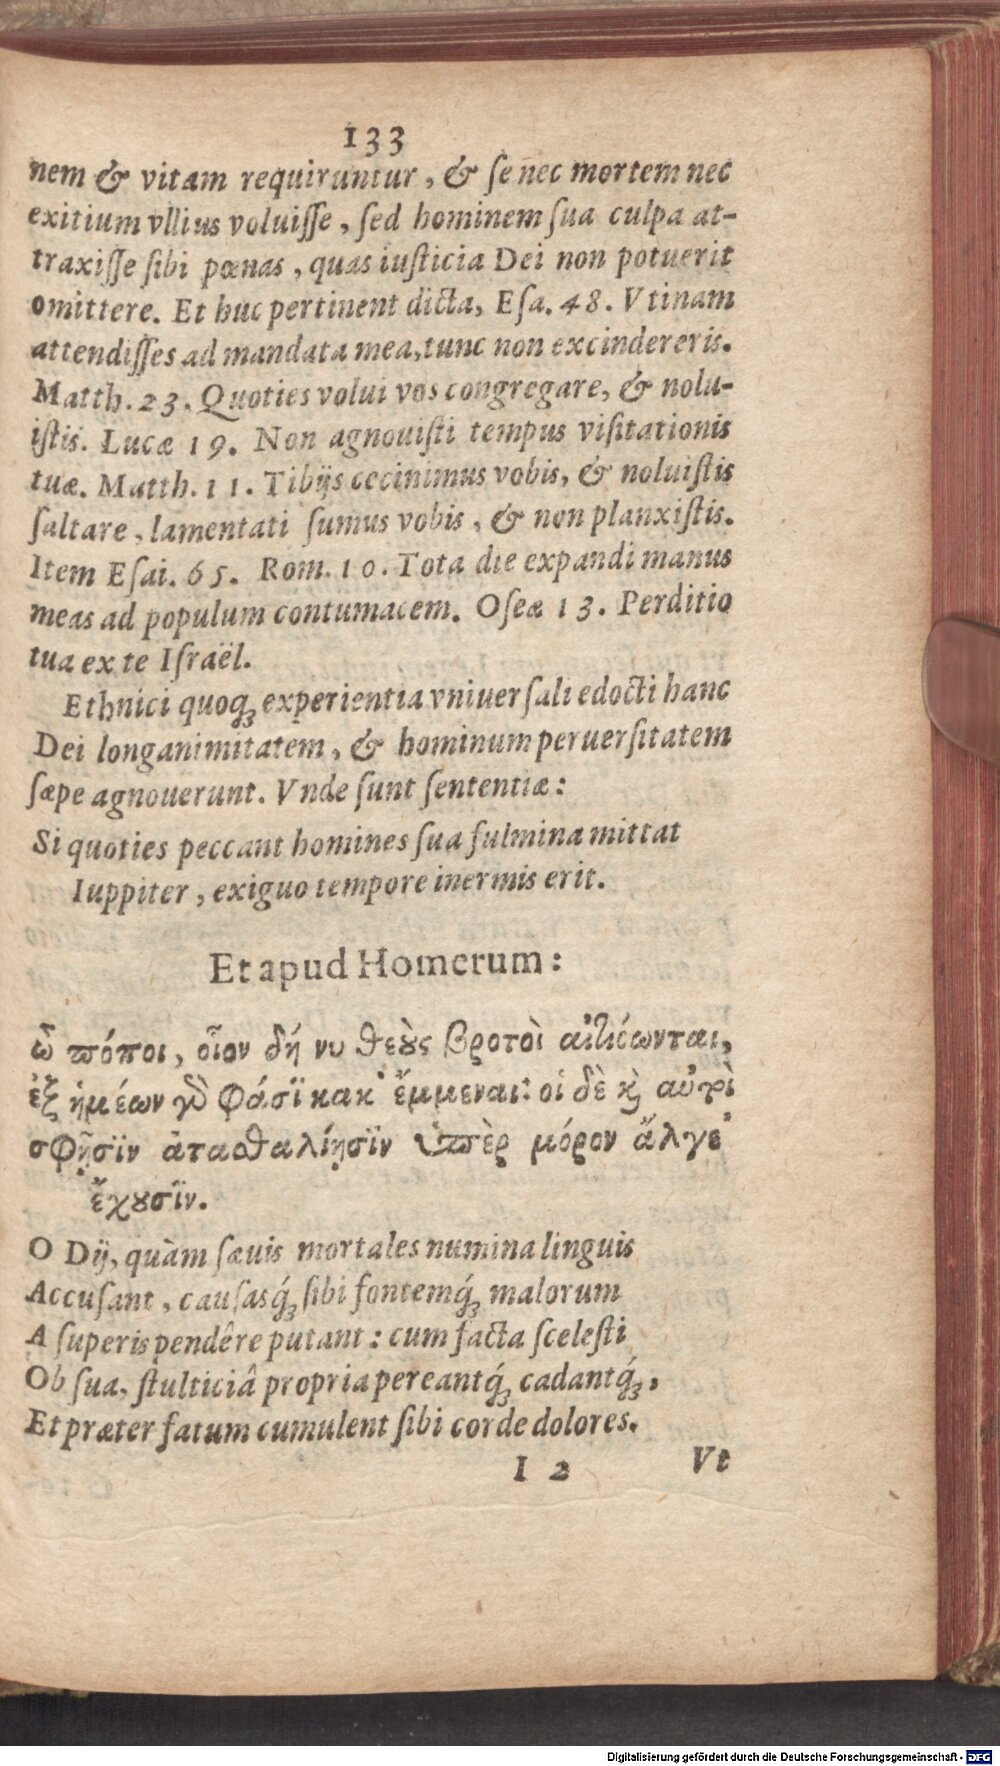 133
nem & vitam requiruntur, & ſe nec mortem nec
exitium vllius voluiſſe, ſed hominem ſua culpa at-
traxiſſe ſibi pœnas, quas iuſticia Dei non potuerit
omittere. Et huc pertinent dicta, Eſa. 48. Vtinam
attendiſſes ad mandata mea, tunc non excindereris.
Matth. 23. Quoties volui vos congregare, & nolu-
iſtis. Lucæ 19. Non agnouiſti tempus viſitationis
tuæ. Matth. 11. Tibijs cecinimus vobis, & noluiſtis
ſaltare, lamentati ſumus vobis, & non planxiſtis.
Item Eſai. 65. Rom. 10. Tota die expandi manus
meas ad populum contumacem. Oſeæ 13. Perditio
tua ex te Iſraël.
Ethnici quoqꝫ experientia vniuerſali edocti hanc
Dei longanimitatem, & hominum peruerſitatem
ſæpe agnouerunt. Vnde ſunt ſententiæ:
Si quoties peccant homines ſua fulmina mittat
Iuppiter, exiguo tempore inermis erit.
Et apud Homerum:
ὢ πόποι, οἷον δή νυ θεȣ̀ς βροτοὶ αἰτιόωνται,
ἐξ ἡμέων γὸ φάσϊ κακ' ἔμμεναι: οἱ δὲ κ̀ αὐτοὶ
σφῇσϊν ἀτασθαλίῃσϊν ὑπὲρ μόρον ἄλγε'
ἔχȣσϊν.
O Dij, quàm ſæuis mortales numina linguis
Accuſant, cauſasq́ꝫ ſibi fontemq́ꝫ malorum
A ſuperis pendêre putant: cum facta ſceleſti
Ob ſua, ſtulticiâ propria pereantq́ꝫ cadantq́ꝫ,
Et præter fatum cumulent ſibi corde dolores.
I 2 Vt
Digitalisierung gefördert durch die Deutsche Forschungsgemeinschaft - DFG